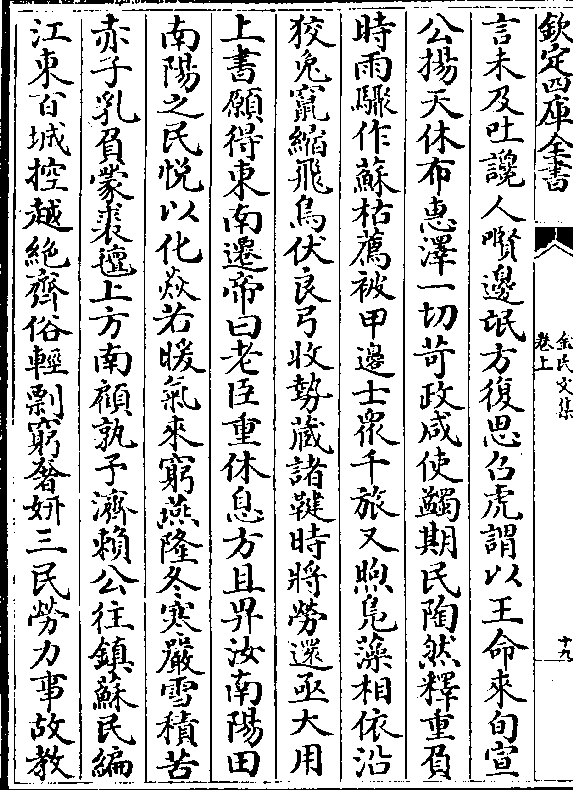 欽定四庫全書
金氏文集
卷上
十九
言未及吐讒人嘫邊氓方復思召虎謂以王命來旬宣
公揚天休布惠澤一切苛政咸使蠲期民陶然釋重負
時雨驟作蘇枯薦被甲邊士衆千旅又煦鳬藻相依沿
狡兔竄縮飛鳥伏良弓收勢藏諸鞬時將勞還亟大用
上書願得東南遷帝曰老臣重休息方且畀汝南陽田
南陽之民恱以化焱若暖氣來窮燕隆冬寒嚴雪積苦
赤子乳負蒙裘氊上方南顧孰予濟賴公徃鎮蘇民編
江東百城控越絶齊俗輕剽窮奢妍三民勞力事故教